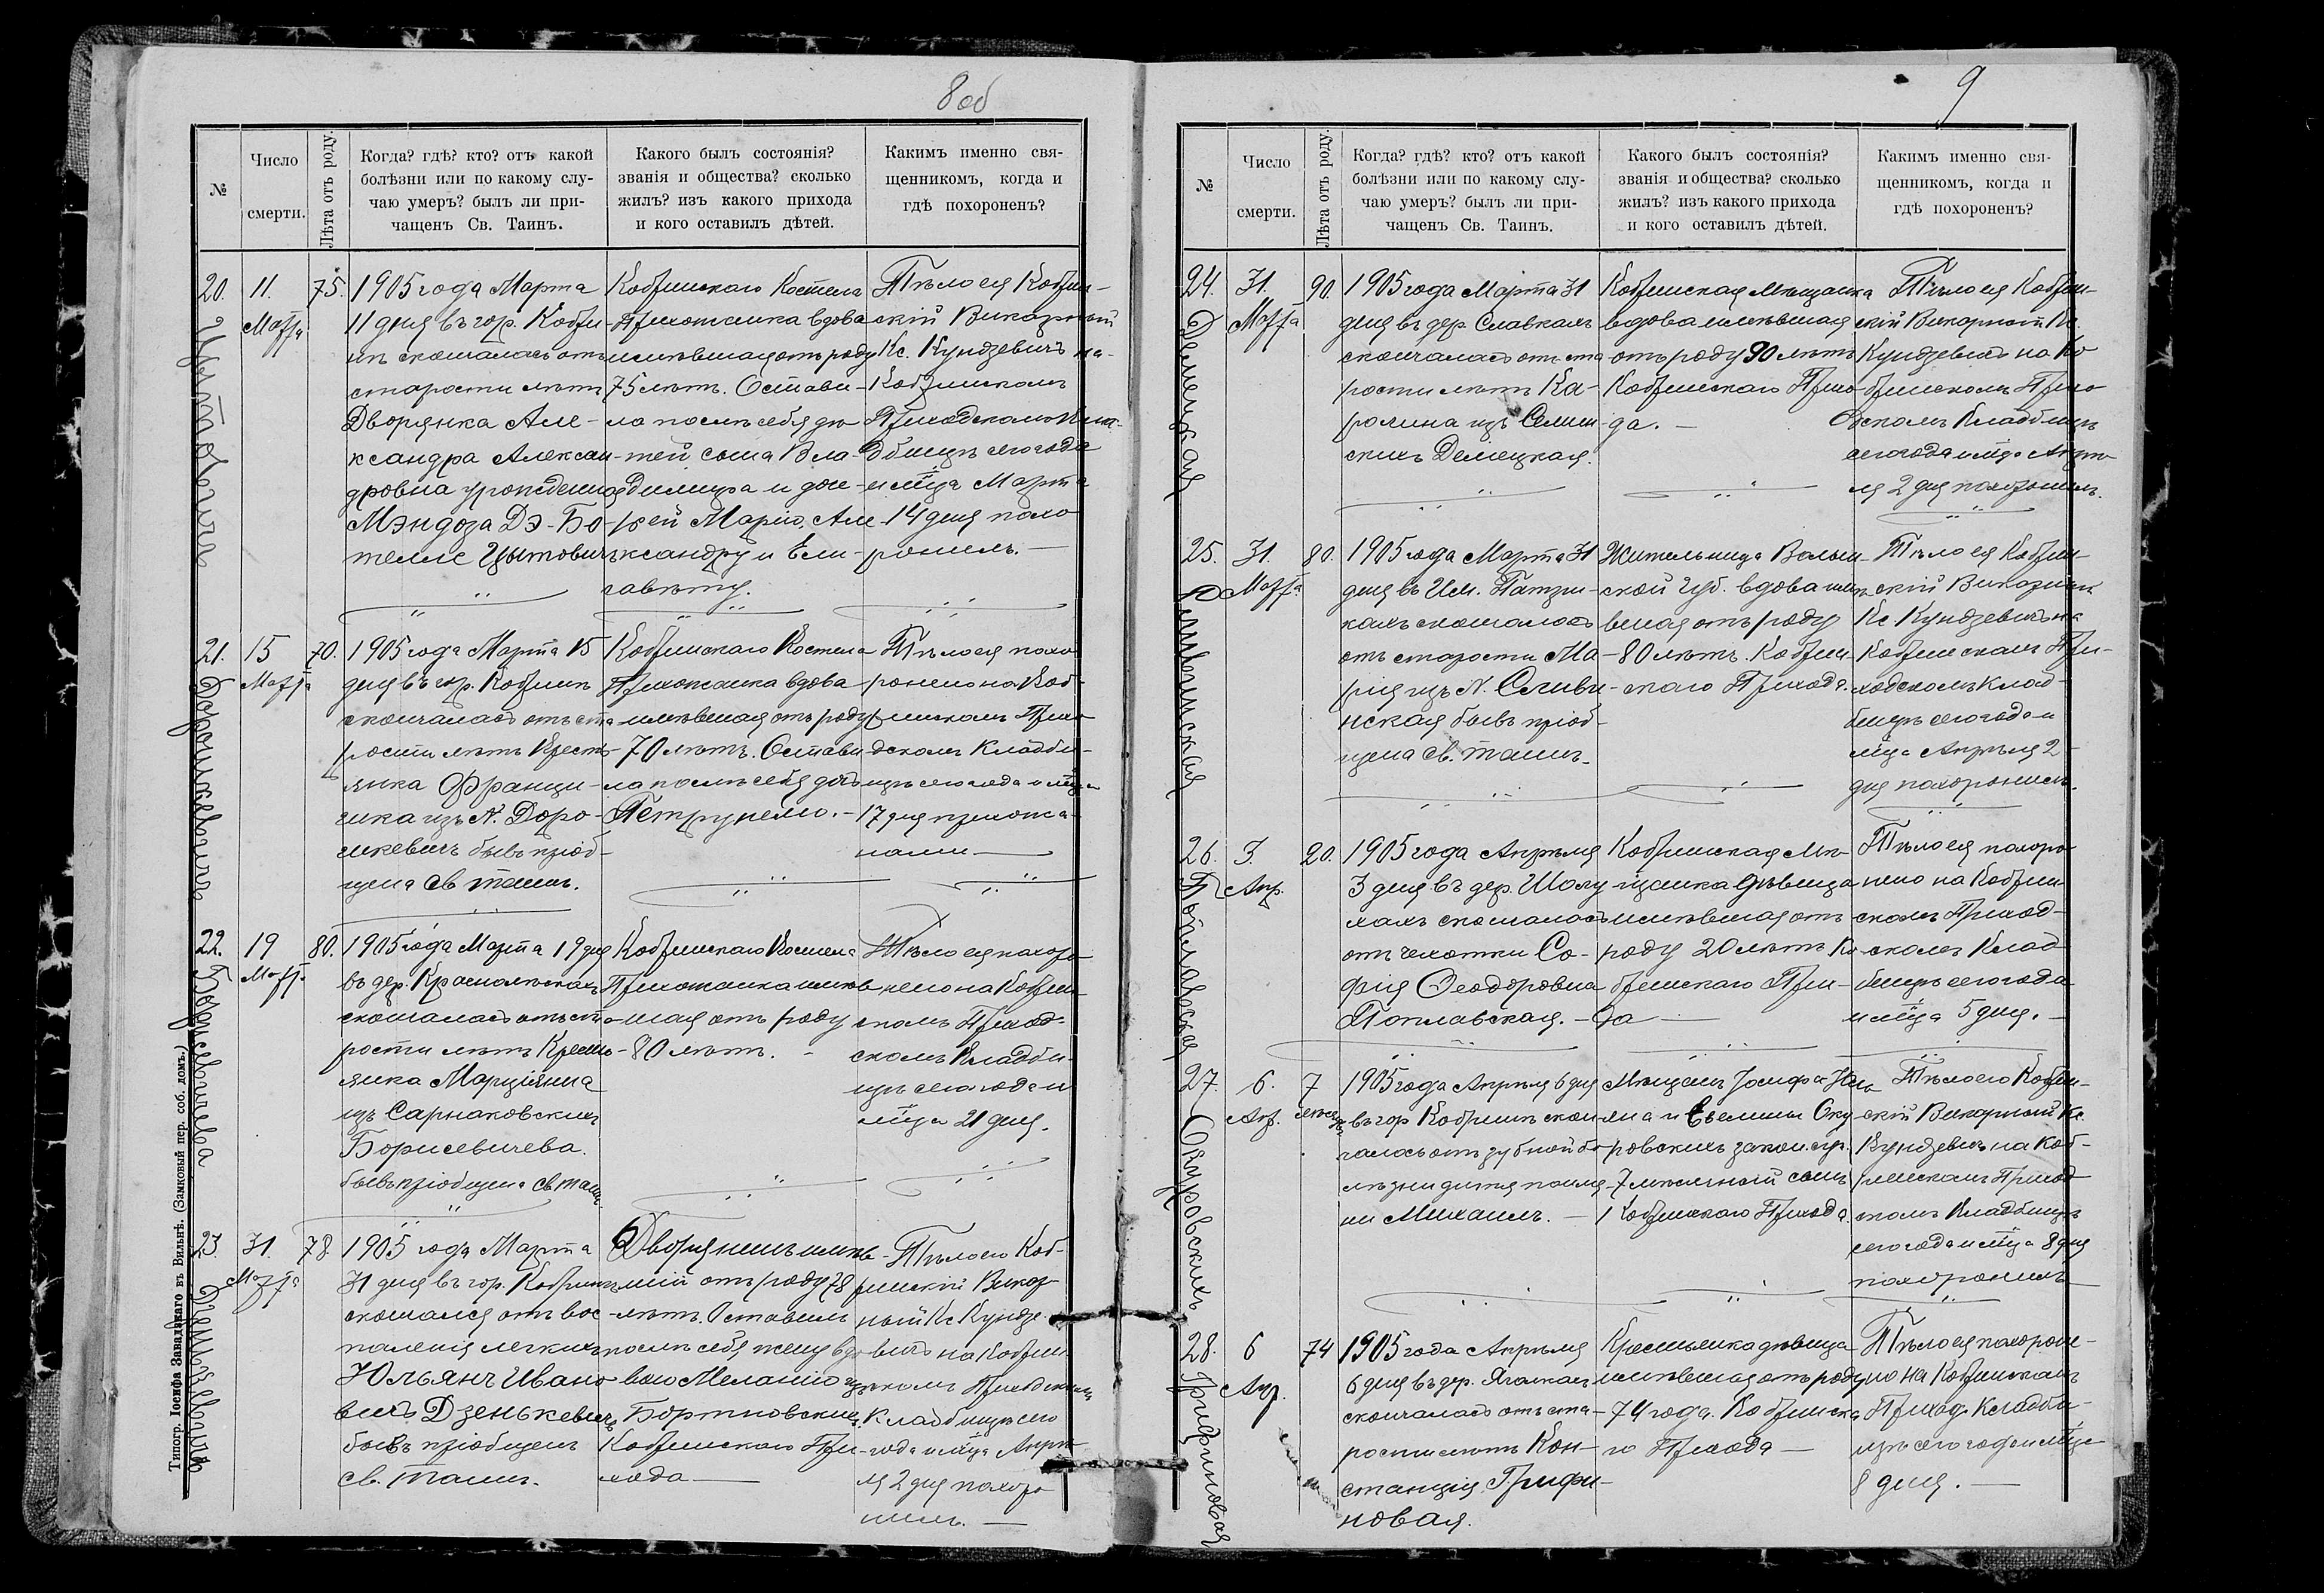 8об
№
Число
смерти.
Лѣта отъ роду.
Когда? гдѣ? кто? отъ какой
болѣзни или по какому слу-
чаю умеръ? былъ ли при-
чащенъ Св. Таинъ.
Какого былъ состоянія?
званія и общества? сколько
жилъ? изъ какого прихода
и кого оставилъ дѣтей.
Какимъ именно свя-
щенникомъ, когда и
гдѣ похороненъ?
20.
Цытовичъ
11.
Марта
75.
1905 года Марта
11 дня въ гор. Кобри-
нѣ скончалась отъ
старости лѣтъ
Дворянка Але-
ксандра Алексан-
дровна урожденная
Мэндоза Дэ-Бо-
телле Цытовичъ
Кобринскаго Костела
Прихожанка вдова
имѣвшая отъ роду
75 лѣтъ. Остави-
ла послѣ себя дѣ-
тей сына Вла-
димира и доче-
рей Марію, Але-
ксандру и Ели-
завету.
Тѣло ея Кобрин-
скій Викарный
Кс. Кундзевичъ на-
Кобринскомъ
Приходскомъ Кла-
дбищѣ сего года
и м-ца Марта
14 дня похо
ронилъ.
21.
Дорошкевичъ
15
Марта
70.
1905 года Марта 15
дня въ гор. Кобринѣ
скончалась отъ ста
рости лѣтъ Кресть-
янка Франци-
шка изъ N. Доро-
шкевичъ бывъ пріоб-
щена Св. таинъ.
Кобринскаго Костела
Прихожанка вдова
имѣвшая отъ роду
70 лѣтъ. Остави
ла послѣ себя дочь
Петрунелю.
Тѣло ея похо
ронено на Коб-
ринскомъ Прихо
дскомъ Кладби-
щѣ сего года и м-ца
17 дня прихожа-
нами
22.
Борисевичева
19
Марта
80.
1905 года Марта 19 дня
въ дер.
скончалась отъ ста-
рости лѣтъ Кресть-
янка Марціянна
изъ Сарнаковскихъ
Борисевичева.
бывъ пріобщена Св. таинъ
Кобринскаго Костела
Прихожанка имѣв
шая отъ роду
80 лѣтъ.
Тѣло ея похоро
нено на Кобрин
скомъ Приход-
скомъ Кладби-
щѣ сего года и
м-ца 21 дня.
23.
Дзенькевичъ
31.
Марта
78.
1905 года Марта
31 дня въ гор. Кобринѣ
скончался отъ вос-
паленія легкихъ
Юльянъ Ивано
вичъ Дзенькевичъ
бывъ пріобщенъ
св. таинъ.
Дворянинъ имѣв-
шій отъ роду 78
лѣтъ. Оставилъ
послѣ себя жену вдо
вою Меланію изъ
Бортновскихъ
Кобринскаго При-
хода
Тѣло его Коб-
ринскій Викар-
ный Кс Кундзе-
вичъ на Кобрин-
скомъ Приходскомъ
Кладбищѣ сего
года и м-ца Апрѣ
ля 2 дня похоро
нилъ.
Типогр. Іосифа Завадзкаго въ Вильнѣ. (Замковый пер. соб. домъ.)
9
№
Число
смерти.
Лѣта отъ роду.
Когда? гдѣ? кто? отъ какой
болѣзни или по какому слу-
чаю умеръ? былъ ли при-
чащенъ Св. Таинъ.
Какого былъ состоянія?
званія и общества? сколько
жилъ? изъ какого прихода
и кого оставилъ дѣтей.
Какимъ именно свя-
щенникомъ, когда и
гдѣ похороненъ?
24.
Демецкая
31.
Марта
90.
1905 года Марта 31
дня въ дер. Славкахъ
скончалась отъ ста
рости лѣтъ Ка-
ролина изъ
Демецкая.
Кобринская Мѣщанка
вдова имѣвшая
отъ роду 90 лѣтъ
Кобринскаго Прихо-
да.
Тѣло ея Кобрин-
скій Викарный Кс.
Кундзевичъ на Ко
бринскомъ Прихо
дскомъ Кладбищѣ
сего года и м-ца Апрѣ
ля 2 дня похоронилъ.
25.
Сливинская
31.
Марта
80.
1905 года Марта 31
дня въ Им. Патри-
кахъ скончалась
отъ старости Ма-
рія изъ N. Сливи-
нская бывъ пріоб-
щена Св. таинъ.
Жительница Волын-
ской Губ. вдова имѣ-
вшая отъ роду
80 лѣтъ. Кобрин-
скаго Прихода.
Тѣло ея Кобрин
скій Викарный
Кс Кундзевичъ на
Кобринскомъ При-
ходскомъ Клад-
бищѣ сего года и
м-ца Апрѣля 2
дня похоронилъ.
26.
Поплавская
3.
Апр.
20.
1905 года Апрѣля
3 дня въ дер. Шолу
хахъ скончалась
отъ чахотки Со-
фія Феодоровна
Поплавская.
Кобринская Мѣ-
щанка дѣвица
имѣвшая отъ
роду 20 лѣтъ Ко-
бринскаго При-
да
Тѣло ея похоро-
нено на Кобрин
скомъ Приход-
скомъ Клад
бищѣ сего года
и м-ца 5 дня.
27.
Окуровскихъ
6.
Апр.
7
мѣсяц.
1905 года Апрѣля 6 дня
въ гор Кобринѣ скон-
чалось отъ зубной бо-
лѣзни дитя по име-
ни Михаилъ.
Мѣщанъ Іосифа
и Евелины Оку-
ровскихъ закон. супр.
7 мѣсячный сынъ
Кобринскаго Прихода.
Тѣло его Кобрин-
скій Викарный Кс.
Кундзевичъ на Коб-
ринскомъ Приход
скомъ Кладбищѣ
сего года и м-ца 8 дня
похоронилъ
28.
Грифиновая
6
Апр.
74
1905 года Апрѣля
6 дня въ дер.
скончалась отъ ста-
рости лѣтъ Кон-
станція Грифи-
новая.
Крестьянка дѣвица
имѣвшая отъ роду
74 года. Кобринска
го Прихода
Тѣло ея похороне-
но на Кобринскомъ
Приход. Кладби-
щѣ сего года и м-ца
8 дня.